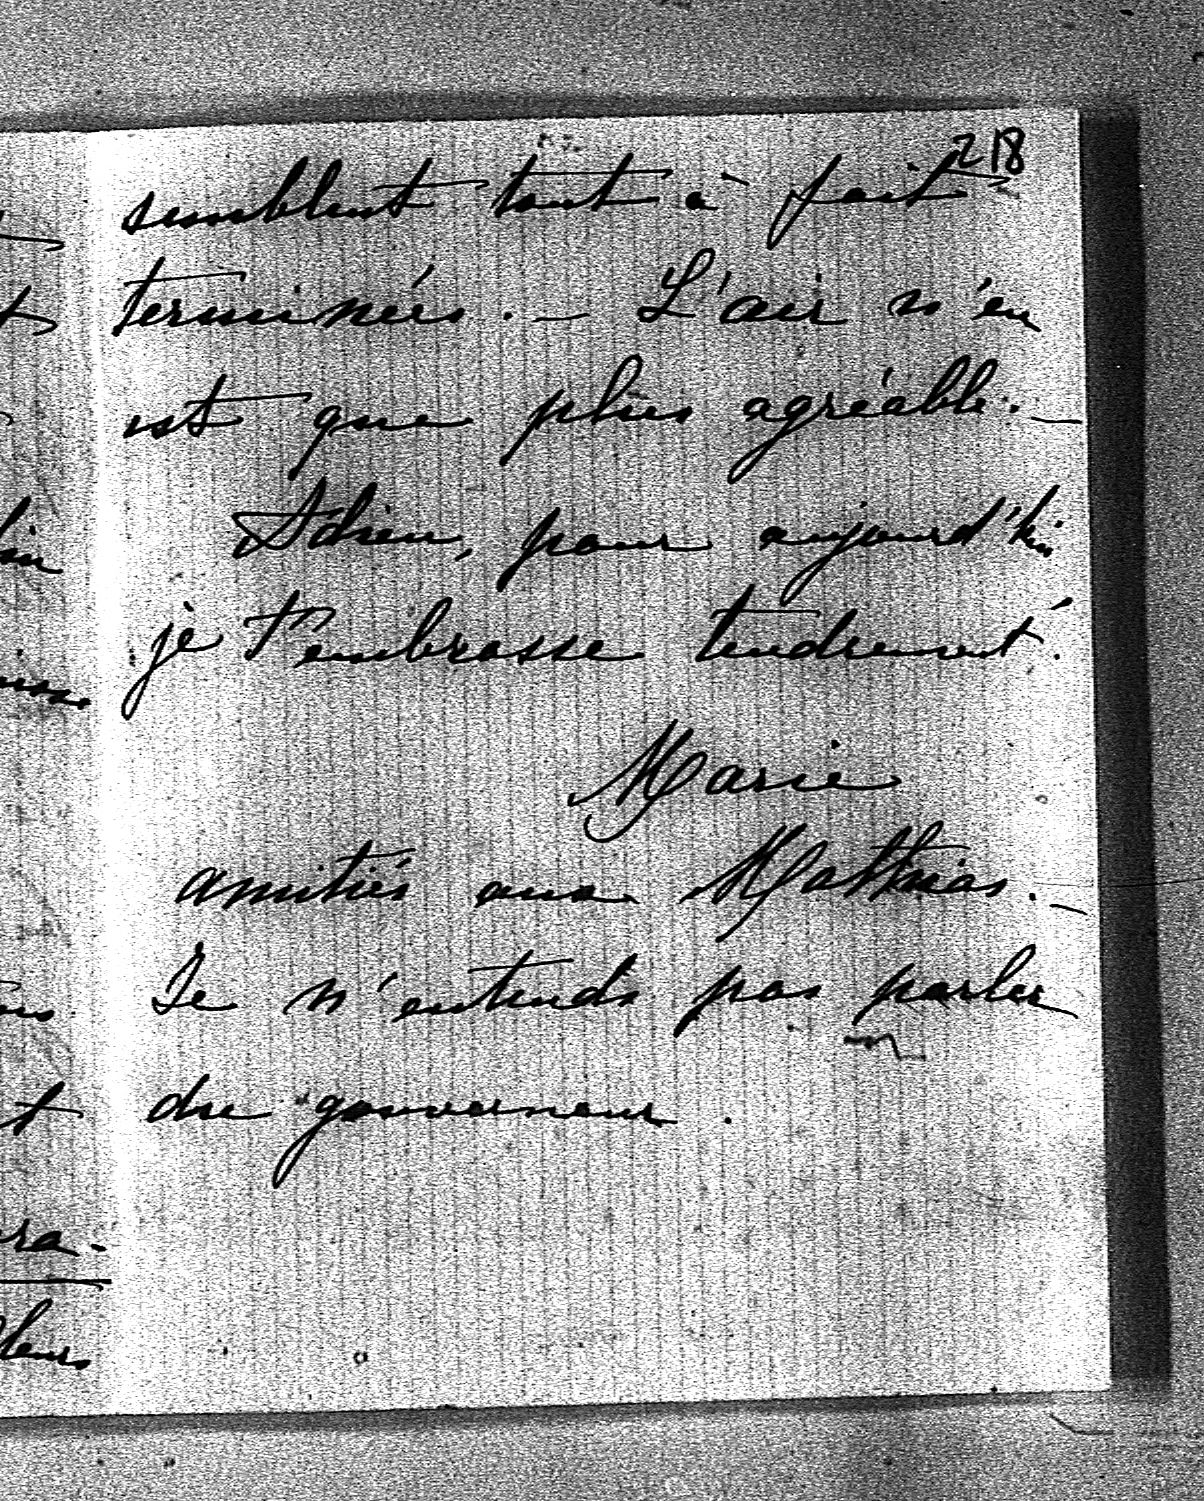 218
semblent tout à fait
terminées. — L'air n'en
est que plus agréable. —
Adieu, pour aujourd'hui
je t'embrasse tendrement.
Marie
amitiés aux Mathias. —
Je n'entends pas parler
du gouverneur.